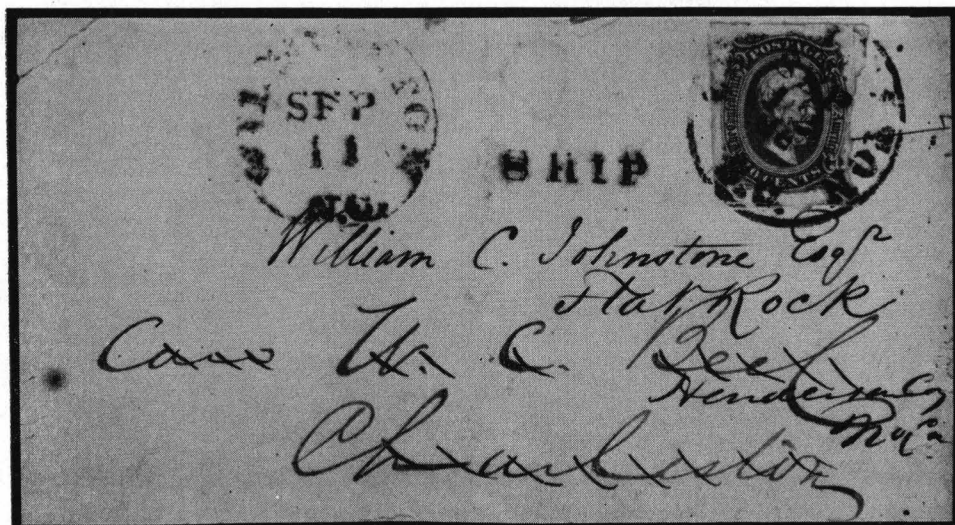 SEP
11
SHIP
POSTAGE
CENTS
William C. Johnstone Esqr
Flat Rock
Care W. C. Bee
Henderson Co
Charleston